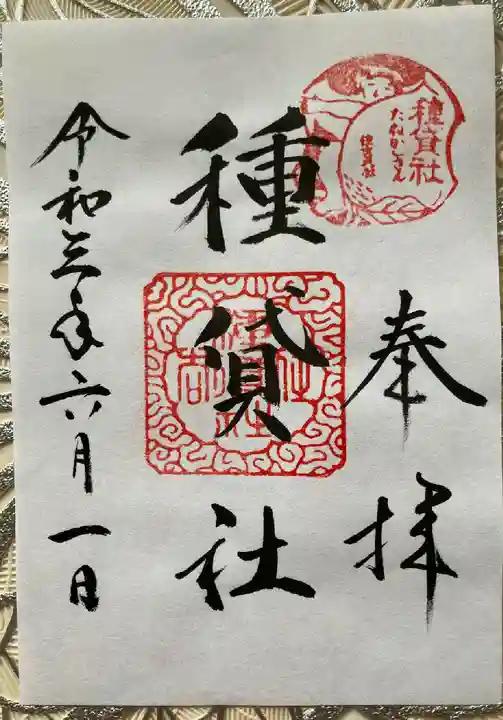 種貸社
たねかしさん
住吉社
奉拝
種貸社
令和三年六月一日